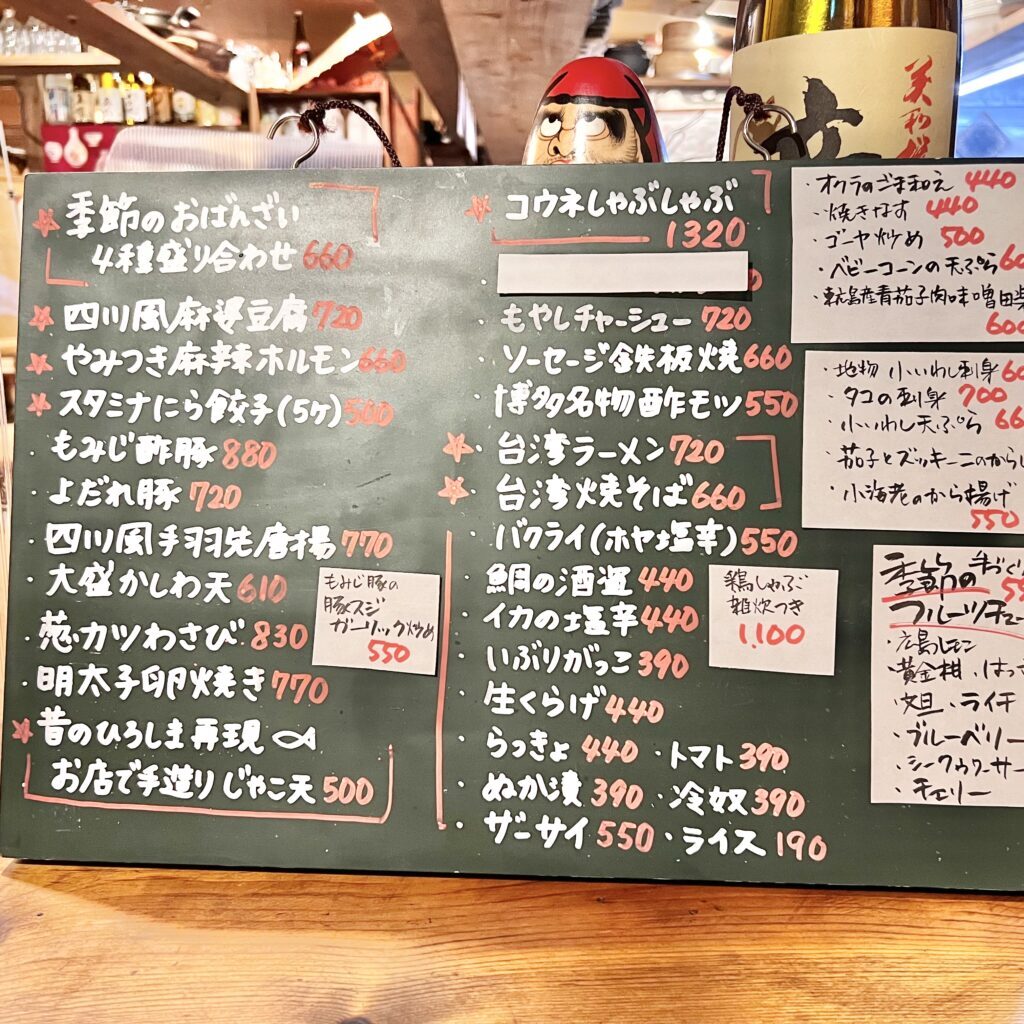 季節のおばんざい
4種盛り合わせ 660
四川風麻婆豆腐 720
やみつき麻辣ホルモン 660
スタミナにら餃子(5ヶ) 500
・もみじ酢豚 880
・よだれ豚 720
・四川風手羽先唐揚 770
・大盛かしわ天 610
・葱カツわさび 830
・明太子卵焼き 770
昔のひろしま再現
お店で手造りじゃこ天 500
もみじ豚の
豚スジ
ガーリック炒め
550
コウネしゃぶしゃぶ
1320
・もやしチャーシュー 720
・ソーセージ鉄板焼 660
・博多名物酢モツ 550
台湾ラーメン 720
台湾焼そば 660
・バクライ(ホヤ塩辛) 550
・鯛の酒盗 440
・イカの塩辛 440
・いぶりがっこ 390
・生くらげ 440
・らっきょ 440 ・トマト 390
・ぬか漬 390 ・冷奴 390
・ザーサイ 550 ・ライス 190
鶏しゃぶ
雑炊つき
1,100
・オクラのごま和え 440
・焼きなす 440
・ゴーヤ炒め 500
・ベビーコーンの天ぷら
青茄子肉味噌田楽
600
・地物 小いわし刺身
・タコの刺身 700
・小いわし天ぷら
・茄子とズッキーニのから
・小海老のから揚げ
550
季節の
フルーツチュー
・広島レモン
・黄金柑・はっさ
・文旦・ライチ
・ブルーベリー
・シークヮーサー
・チェリー